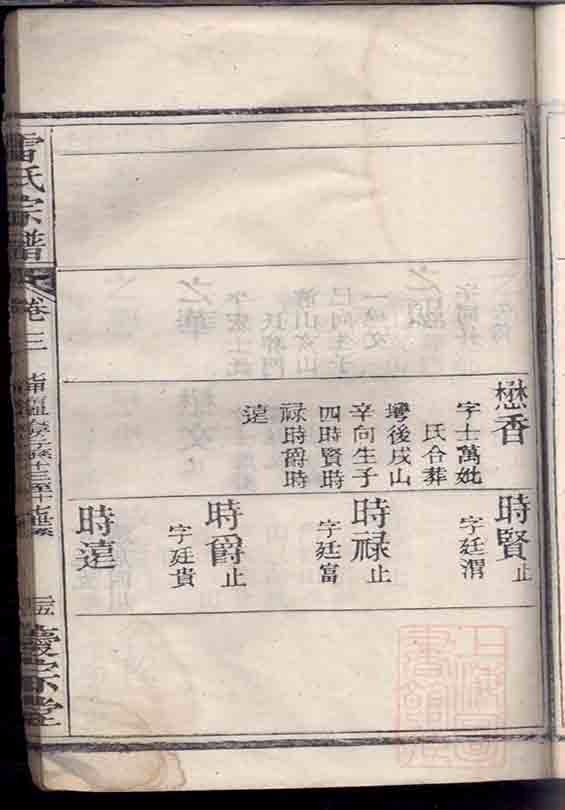 懋香
字士萬妣
氏合葬
灣後戌山
辛向生子
四時賢時
祿時爵時
遠
時賢止
字廷渭
時祿止
字廷富
時爵止
字廷貴
時遠
雷氏宗譜
卷三
上海圖書館藏